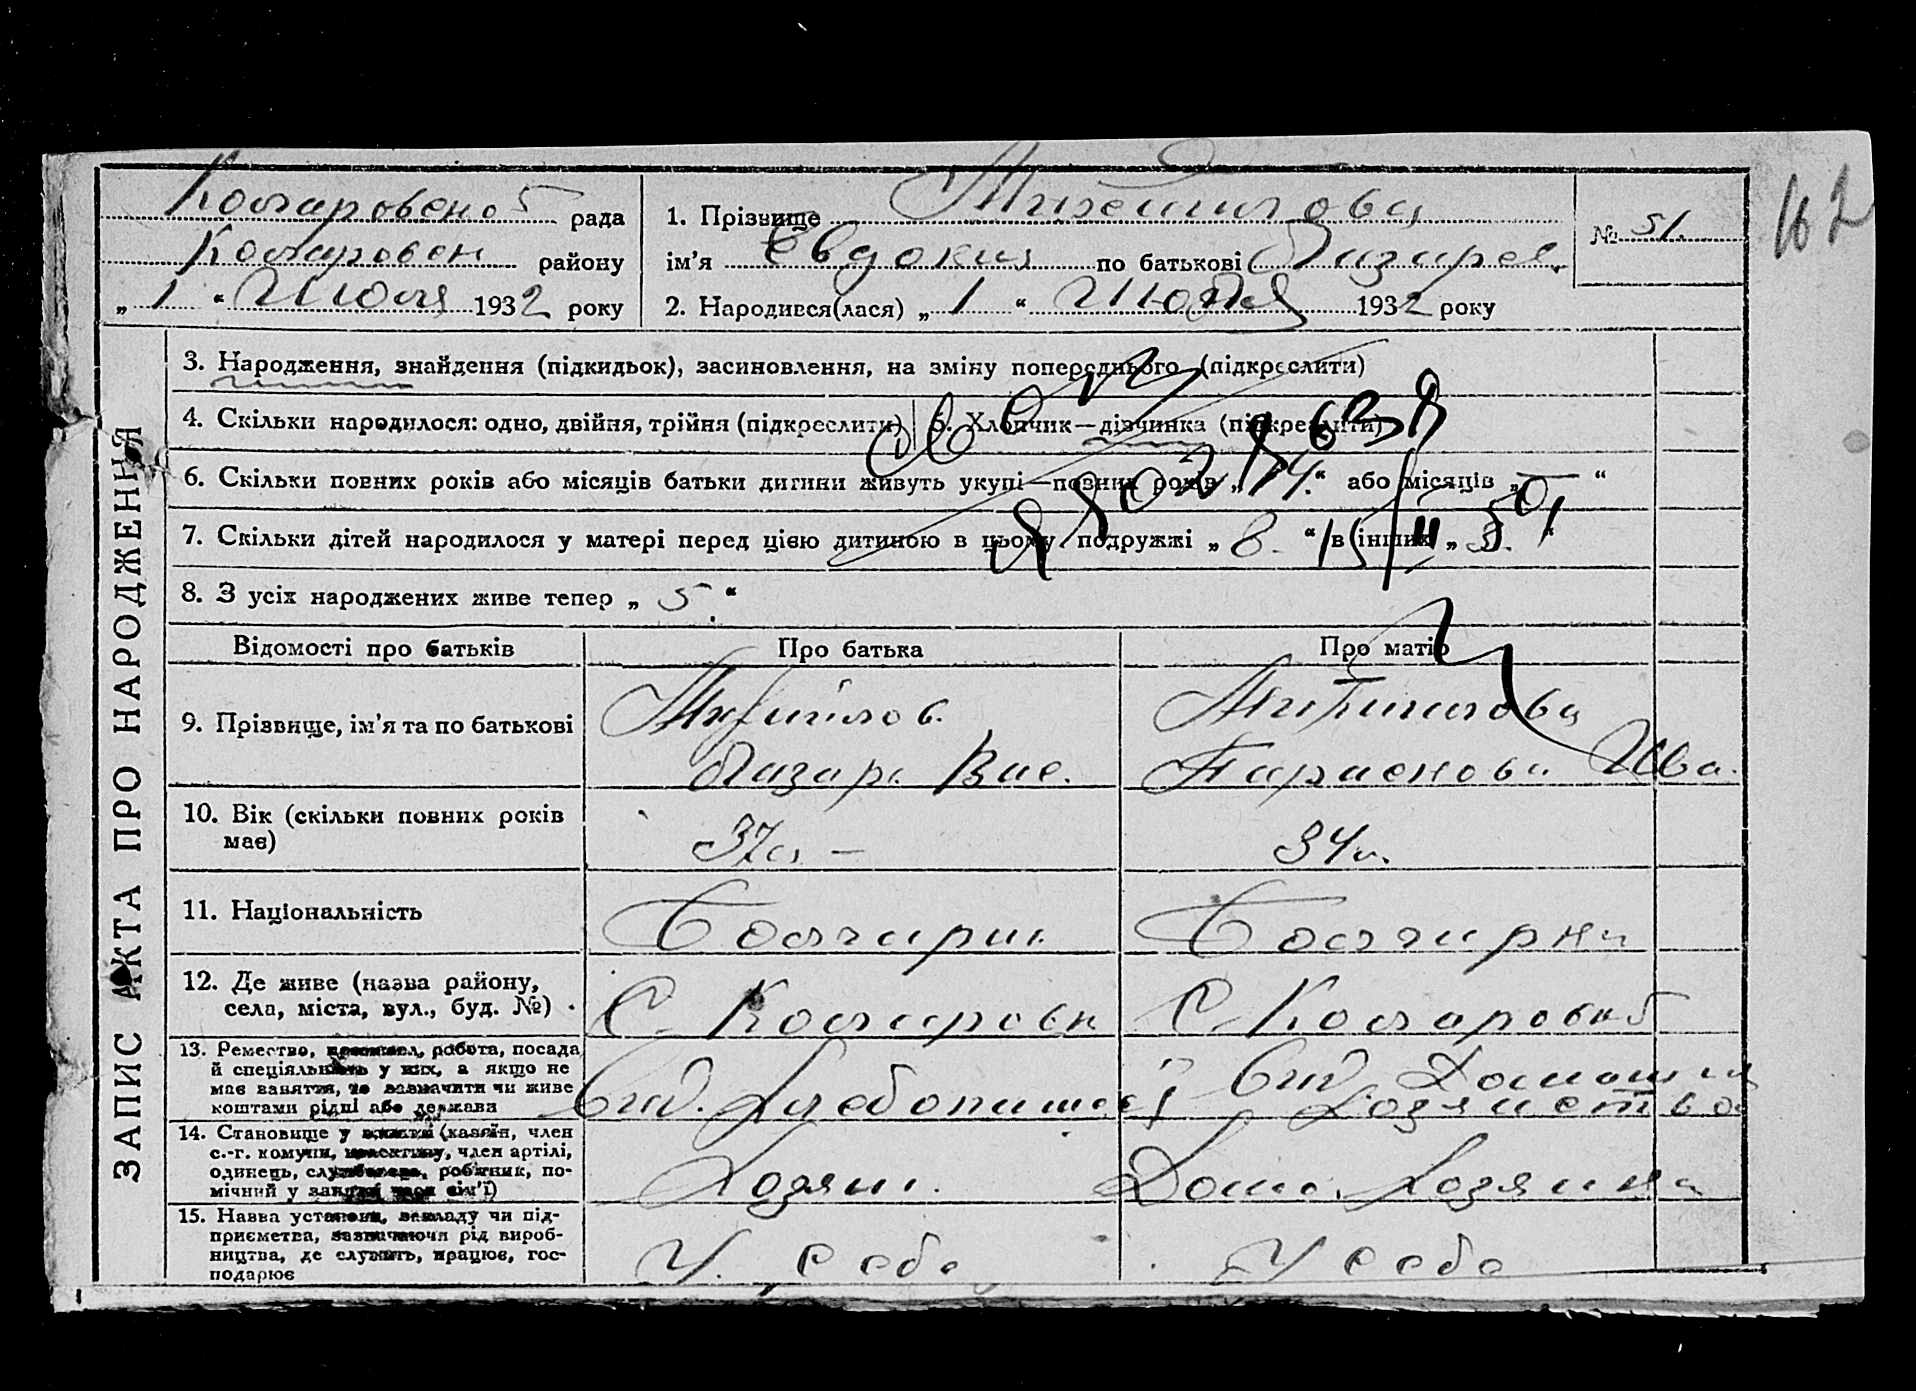 рада
района
району
„ 1 “ Июля 1932 року
1. Прізвище
ім’я Евдокия по батькові Лазарев.
2. Народився(лася) „ 1 “ Июля 1932 року
№ 51.
162
ЗАПИС АКТА ПРО НАРОДЖЕННЯ
3. Народження, знайдення (підкидьок), засиновлення, на зміну попереднього (підкреслити)
4. Скільки народилося: одно, двійня, трійня (підкреслити) 5. Хлопчик—дівчинка (підкреслити)
6. Скільки повних років або місяців батьки дитини живуть укупі—повних років „ 14. “ або місяців „ — “
7. Скільки дітей народилося у матері перед цією дитиною в цьому подружжі „ 8. “ в інших „ “
8. З усіх народжених живе тепер „ 5. “
Відомості про батьків Про батька Про матір
9. Прізвище, ім’я та по батькові
Лазарь Вас. Ива.
10. Вік (скільки повних років
має) 37 34
11. Національність Болгарин Болгарка
12. Де живе (назва району,
села, міста, вул., буд. №) С. С.
13. Ремество, промисел, робота, посада
й спеціяльність у них, а якщо не
має заняття, то зазначити чи живе
коштами рідні або держави
Домашн
14. Становище у занятті (хазяїн, член
с.-г. комуни, колективу, член артілі,
одинець, службовець, робітник, по-
мічний у занятті член сім’ї) Хозяин. Дома. Хозяика
15. Назва установи, закладу чи під-
приємства, зазначаючи рід вироб-
ництва, де служить, працює, гос-
подарює У себе У себе